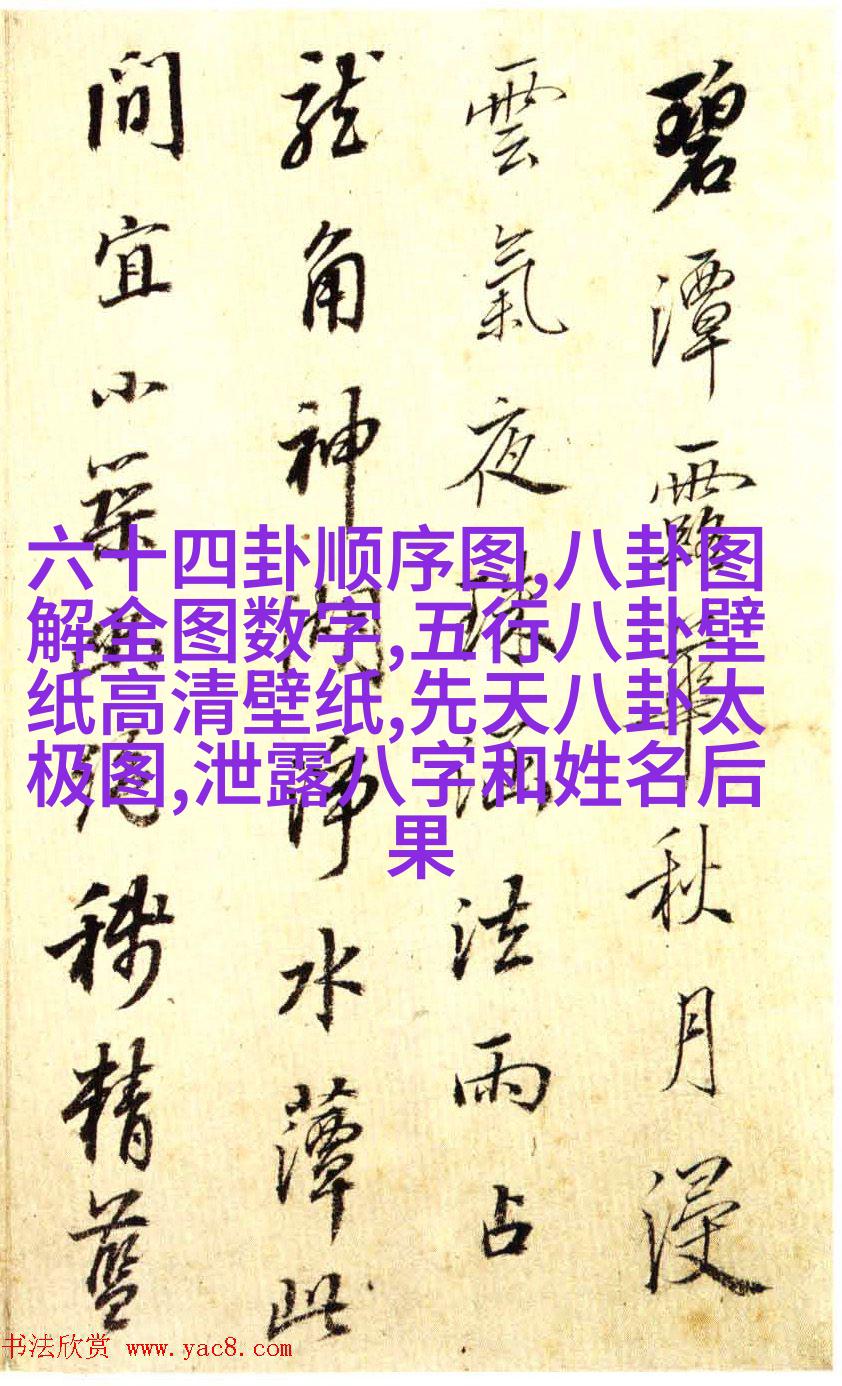 碧潭露華秋月浸
雲氣夜珠涵法雨占
龍角神湖淨水薄此
間宜小築
稀精藍
六十四卦顺序图,八卦图
解全图数字,五行八卦壁
纸高清壁纸,先天八卦太
极图,泄露八字和姓名后
果
书法欣赏 www.yac8.com